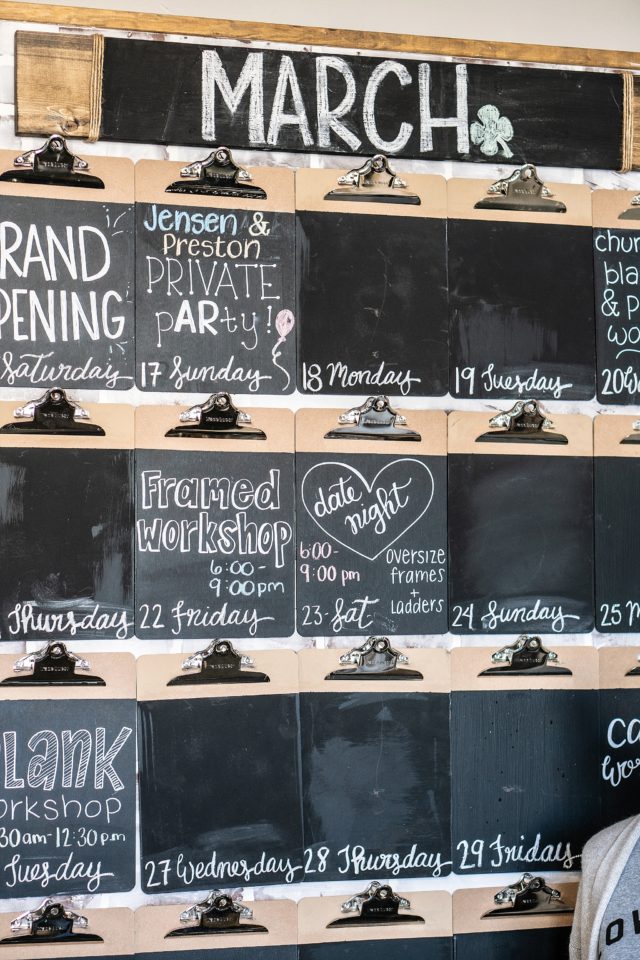 MARCH
RAND
PENING
Saturday
Jensen &
Preston
PRIVATE
pARty!
17 Sunday
18 Monday
19 Tuesday
& p
20
Thursday
Framed
workshop
6:00-
9:00pm
22 Friday
date
night
6:00-
9:00 pm
oversize
frames
+
LADDERS
23-Sat
24 Sunday
25 M
LANK
orkshop
30am-12:30pm
Tuesday
27 Wednesday
28 Thursday
29 Friday